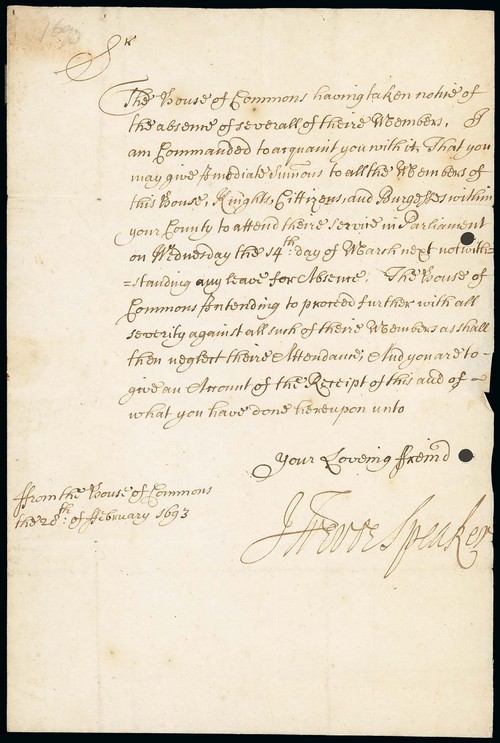 1693
Sr
The House of Commons having taken notice of
the absence of severall of theire Members, I
am Commanded to acquaint you with it, That you
may give Imediate Sumons to all the Members of
this House, Knights, Cittizens, and Burgesses within
your County to attend theire Service in Parliament
on Wednesday the 14th. day of March next notwith=
=standing any leave for Absence, The House of
Commons Intending to proceed further with all
severity against all such of theire Members as shall
then neglect theire Attendance; And you are to -
give an Account of the Receipt of this and of
what you have done hereupon unto
Your Loveing ffreind
ffrom the House of Commons
the 28th. of ffebruary 1693
J Trevor Speaker